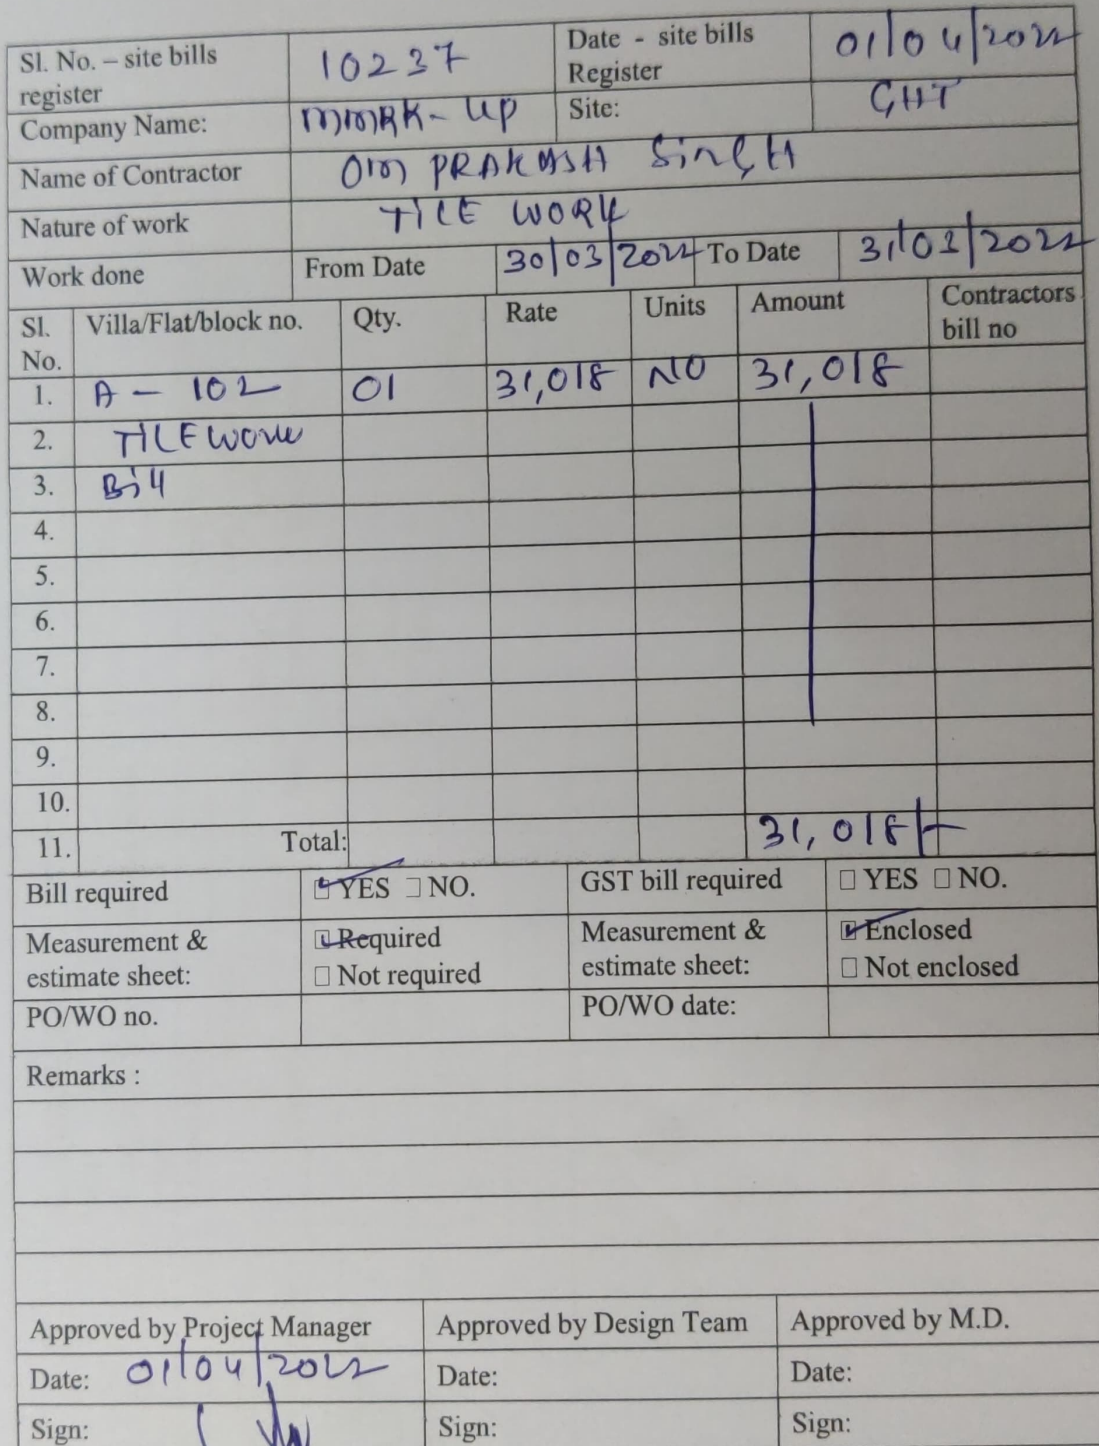 Sl. No. – site bills register 10237 Date - site bills Register 01/04/2022
Company Name: MMRK-UP Site: GHT
Name of Contractor OM PRAKASH SINGH
Nature of work TILE WORK
Work done From Date 30/03/2022 To Date 31/03/2022
Sl. No. Villa/Flat/block no. Qty. Rate Units Amount Contractors bill no
1. A - 102 01 31,018 NO 31,018
2. TILE WORK
3. Bill
4.
5.
6.
7.
8.
9.
10.
11. Total: 31,018/-
Bill required ☑ YES ☐ NO. GST bill required ☐ YES ☐ NO.
Measurement & estimate sheet: ☑ Required ☐ Not required Measurement & estimate sheet: ☑ Enclosed ☐ Not enclosed
PO/WO no. PO/WO date:
Remarks :
Approved by Project Manager Approved by Design Team Approved by M.D.
Date: 01/04/2022 Date: Date:
Sign: Sign: Sign: